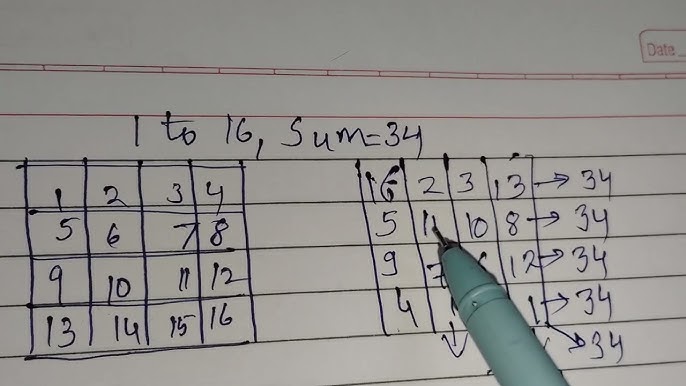 Date
1 to 16, Sum=34
1 2 3 4 16 2 3 13 → 34
5 6 7 8 5 11 10 8 → 34
9 10 11 12 9 7 12 → 34
13 14 15 16 4 1 → 34
→ 34